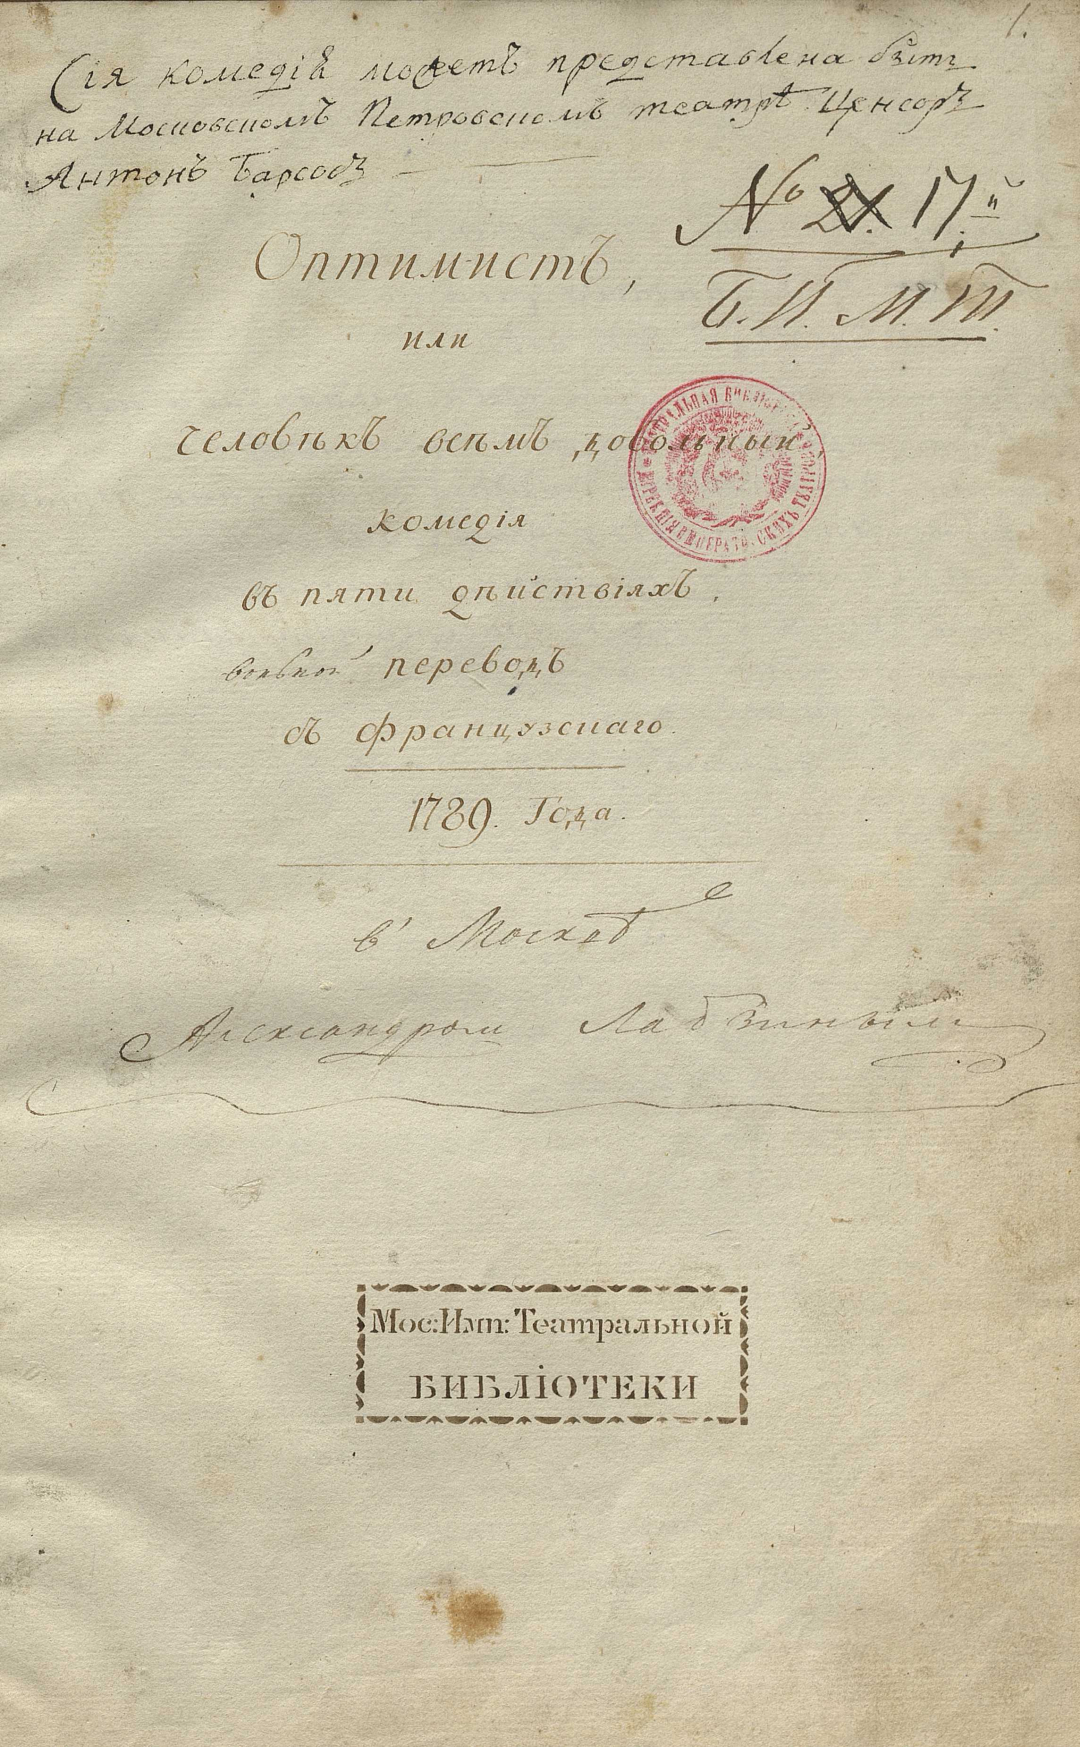 1.
Сія комедія можетъ представлена быть
на Московскомъ Петровскомъ театрѣ. Ценсоръ
Антонъ Барсовъ
№ 2. 17.й
Б. И. М. Т.
Оптимистъ,
или
человѣкъ всѣмъ довольный
комедія
въ пяти дѣйствіяхъ,
вольной переводъ
съ французскаго.
1789. Года.
в' Москвѣ
Александром Лабзиным
ЦЕНТРАЛЬНАЯ БИБЛІОТЕКА ДИРЕКЦІЯ ИМПЕРАТОРСКИХЪ ТЕАТРОВЪ
Мос:Имп:Театральной
БИБЛІОТЕКИ